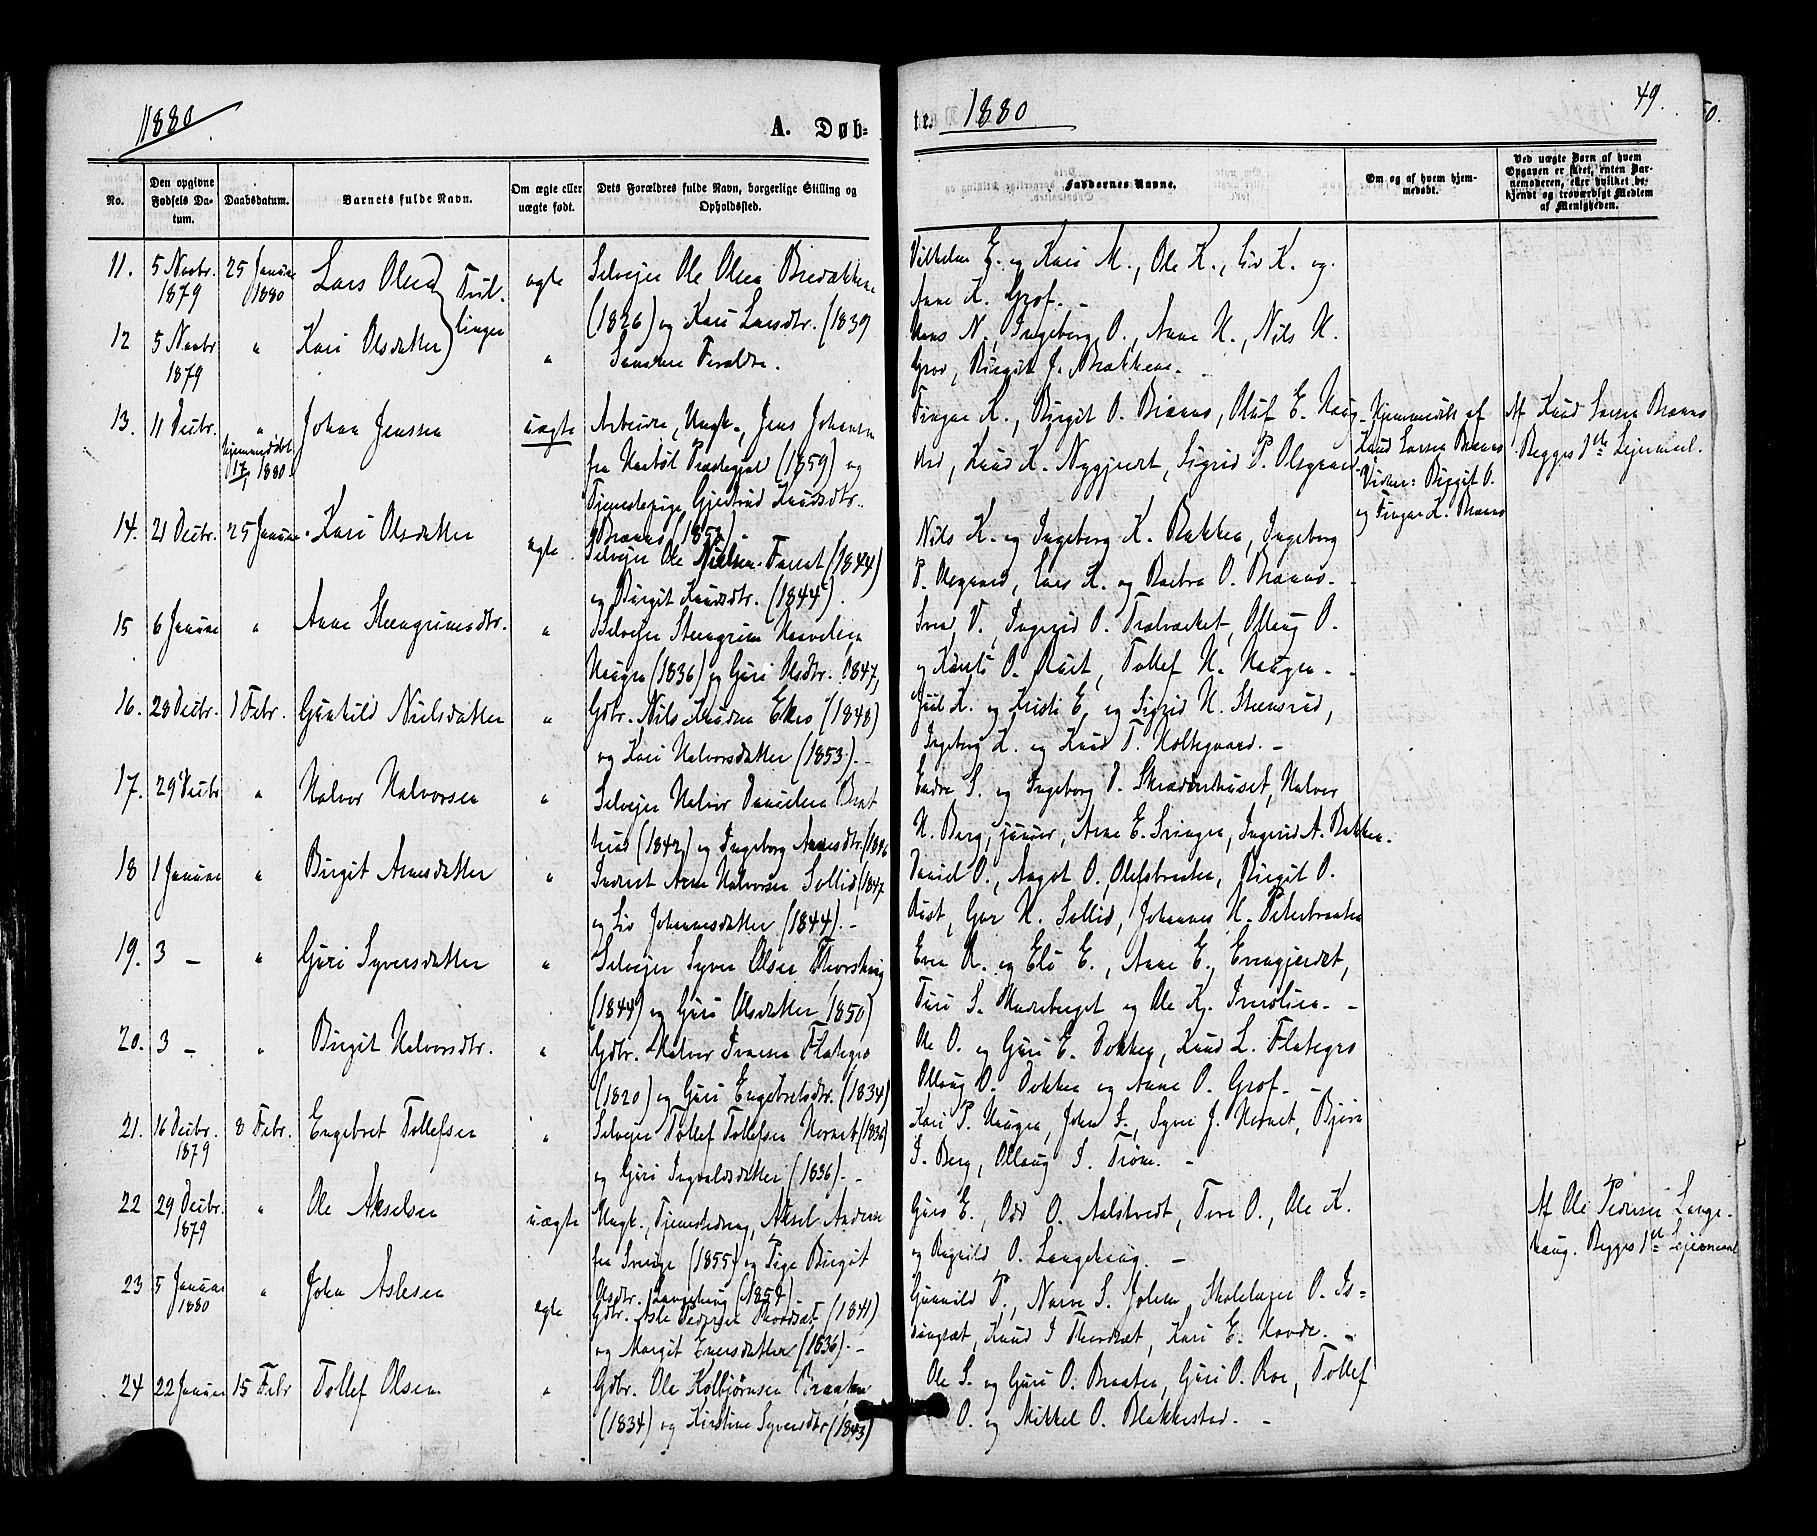 1880
A. Døb-
te. 1880
49.
50.
No.
Den opgivne Fødsels Datum.
Daabsdatum.
Barnets fulde Navn.
Om ægte eller uægte født.
Dets Forældres fulde Navn, borgerlige Stilling og Opholdssted.
Faddernes Navne.
Om og af hvem hjemmedøbt.
Ved uægte Børn af hvem Opgaven er skeet, enten Barnemoderen, eller hvilket bekjendt og troværdigt Medlem af Menigheden.
11. 5 Novbr. 1879 25 Januar 1880 Lars Olsen Tvillinger ægte Selveier Ole Olsen Bredakkene
(1826) og Kari Larsdtr. (1839
Vilhelm E. og Kari M., Ole K., Liv K. og
Anne K. Grof. -
12 5 Novbr 1879 " Kari Olsdatter " Samme Forældre.
Hans N., Ingeborg O., Anne N., Nils N.
Grov, Birgit J. Brakkene. -
13. 11 Decbr. " hjemmedøbt 17/1 1880. Johan Jenssen uægte Arbeider, Ungk., Jens Johansen
fra Præstegjeld (1859) og
Tjenestepige Gjertrud Knudsdtr.
Braaas (1853). -
Fingar K., Birgit O. Braaas, Oluf E. Haug-
Knud K. Nygjerdet, Sigrid P. Olsgaard
Hjemmedøbt af
Knud Larsen Braaas
Vidner: Birgit O.
og Fingar K. Braaas
Af Knud Larsen Braaas
Begges 1ste Leiermaal.
14. 21 Decbr. 25 Januar Kari Olsdatter ægte Selveier Ole Nielsen (1844)
og Birgit Knudsdtr. (1844).
Nils K. og Ingeborg K. Bakken, Ingeborg
P. Olsgaard, Lars K. og Barbra O. Braaas. -
15 6 Januar " Anne Steengrimsdtr. " Selveier Steengrim
Haugen (1836) og Guri Olsdtr. 1847,
Svend V., Ingerid O. Traavarket, Ollaug O.
og O. Rust, Tollef N. Haugen. -
16. 28 Decbr. 1 Febr. Gunhild Nielsdatter " Gdbr. Nils Knudsen Ekro (1848)
og Kari Halvorsdatter (1853). -
Juul K. og Kristi E. og Sigrid N. Steensrud,
Ingeborg K. og Knud T. Holtegaard. -
17. 29 Decbr " Halvor Halvorsen " Selveier Halvor Danielsen
(1842) og Ingeborg Arnesdtr. (1846
Endre S. og Ingeborg D. Skrædderhuset, Halvor
N. Berg, junior, Arne E. Svingen, Ingerid A. Bakken.
18 1 Januar " Birgit Arnesdatter " Inderst Arne Halvorsen Sollid (1847
og Liv Johannesdatter (1844). -
Daniel O., Aagot O. Olefsbraaten, Birgit O.
Rust, Guri N. Sollid, Johannes N. Petersbraaten
19. 3 - " Guri Syversdatter " Selveier Syver Olsen Thorshaug
(1844) og Guri Olsdatter 1850)
Even R. og Eli E., Anne E. Evengjerdet,
Turi S. og Ole Kj. -
20. 3 - " Birgit Halvorsdtr. " Gdbr. Halvor Iversen Flategro
(1820) og Guri Engebretsdtr. (1834)
Ole O. og Guri E. Dokken, Knud L. Flategro
Ollaug O. Dokken og Anne O. Grof. -
21. 16 Decbr. 1879 8 Febr. Engebret Tollefsen " Selveier Tollef Tollefsen (1836)
og Guri Ingvaldsdatter (1836). -
Kari P. Haugen, John S., Syver J. Bjørn
I. Berg, Ollaug I. -
22 29 Decbr. 1879 " Ole Akselsen uægte Ungk., Tjenestedreng, Aksel Andersen
fra Sverige (1855) og Pige Birgit
Olsdtr. Langehaug (1854) -
Guri E., Odd O. Aalstvedt, Tore O., Ole K.
og Ragnild O. Langehaug. -
Af Ole Pedersen Lange-
haug. Begges 1ste Leiermaal
23 5 Januar 1880 " John Aslesen ægte Gdbr. Asle Pedersen Thordsæt (1841)
og Margit Evensdatter (1836). -
Gunvild P., Narve S. Jolen, Skolelærer O. Is-
Knud I Thordsæt, Kari E. Hovde. -
24 22 Januar 15 Febr Tollef Olsen " Gdbr. Ole Kolbjørnsen Braaten
(1834) og Kirstine Syversdtr (1843)
Ole S. og Guri O. Braaten, Guri O. Roe, Tollef
O. og Mikkel O. Blakkestad. -